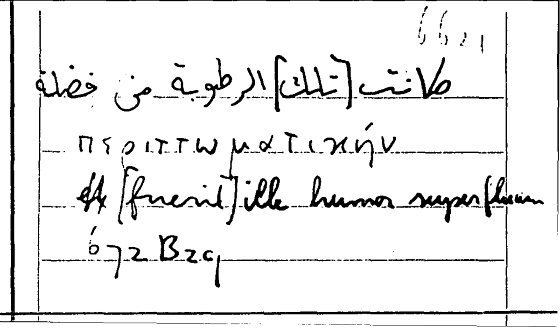 6621
كانت [تلك] الرطوبة من فضلة
περιττωματικήν
[fuerit] ille humor
672 B29